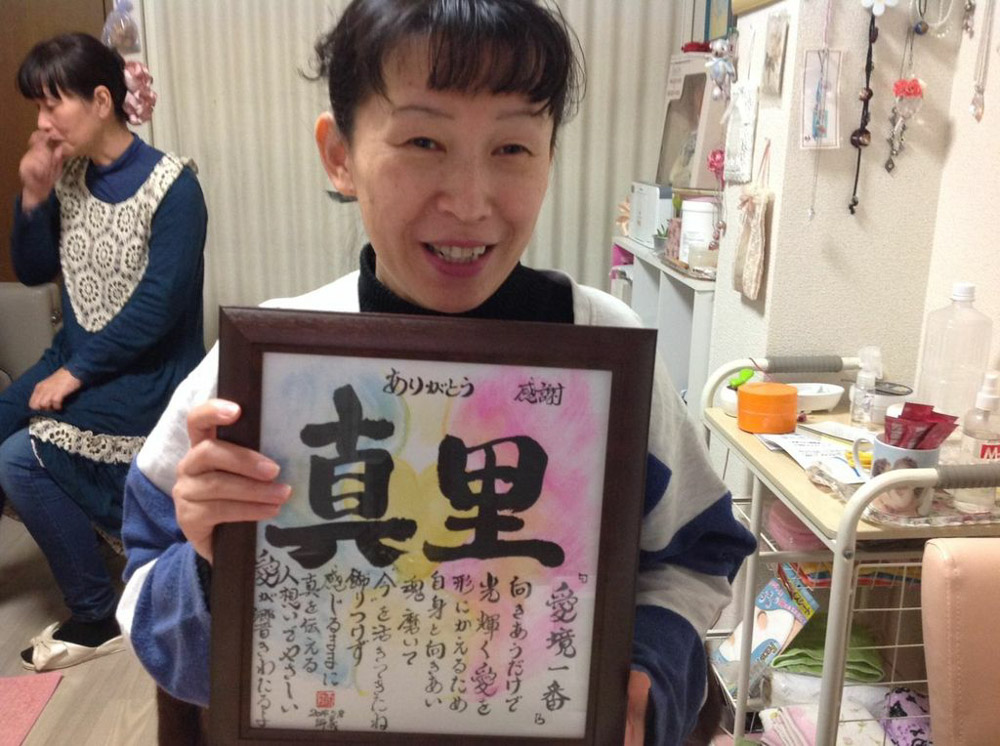 ありがとう 感謝
真里
『愛境一番』
向きあうだけで
光輝く愛を
形にかえるため
自身と向きあい
魂磨いて
今を活き
飾りつけず
感じるままに
真を伝える
人想いでやさしい
愛が響きわたる